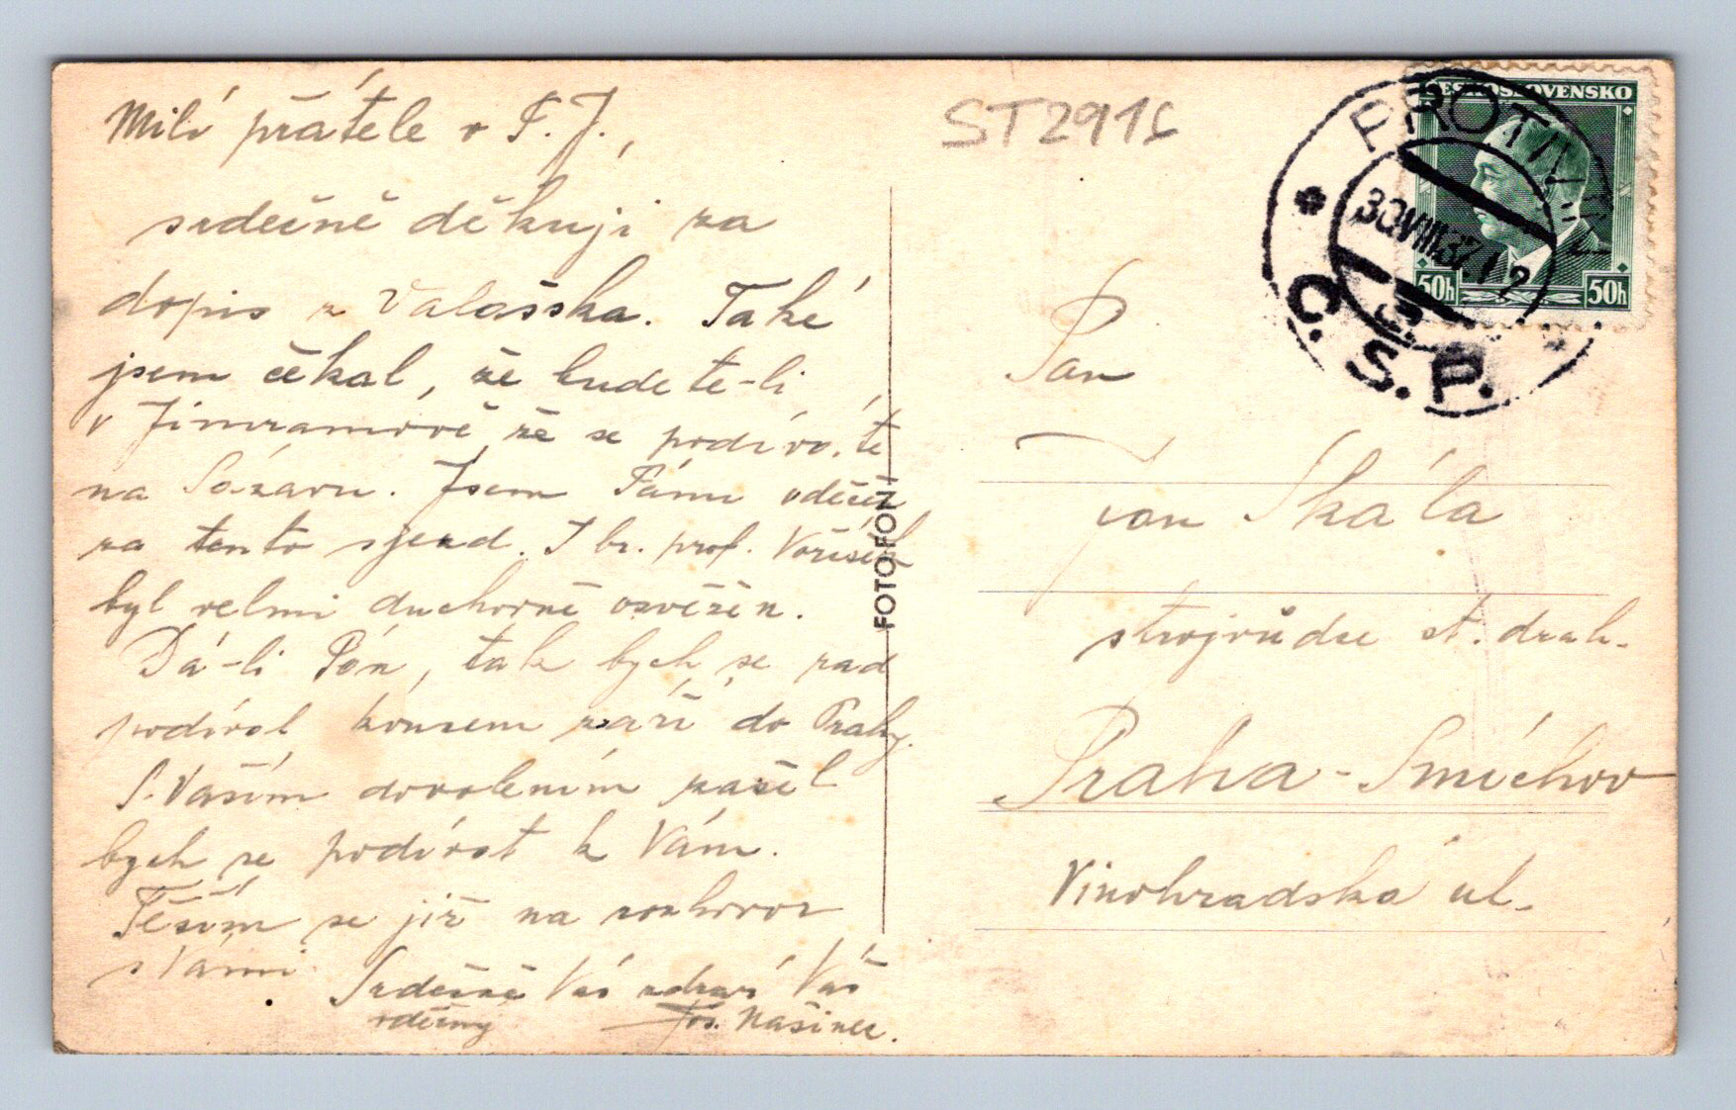 Milí přátele v P. J.,
srdečně děkuji za
dopis z Valašska. Také
jsem čekal, že budete-li
v Jimramově, že se podíváte
na Sázavu. Jsem Pánu vděčen
za tento sjezd. I br. prof. Voříšek
byl velmi duchovně osvěžen.
Dá-li Pán, tak bych se rad
podíval koncem září do Prahy.
S Vaším dovolením zašel
bych se podívat k Vám.
Těším se již na rozhovor
s Vámi.
Srdečně Vás zdraví Váš
vděčný Jos. Mašinec.
FOTO-FON
ST291
ČESKOSLOVENSKO
50h 50h
PROTIV
30.VIII.37
Č.S.P.
Pan
Jan Skála
strojvůdce st. drah.
Praha-Smíchov
Vinohradská ul.